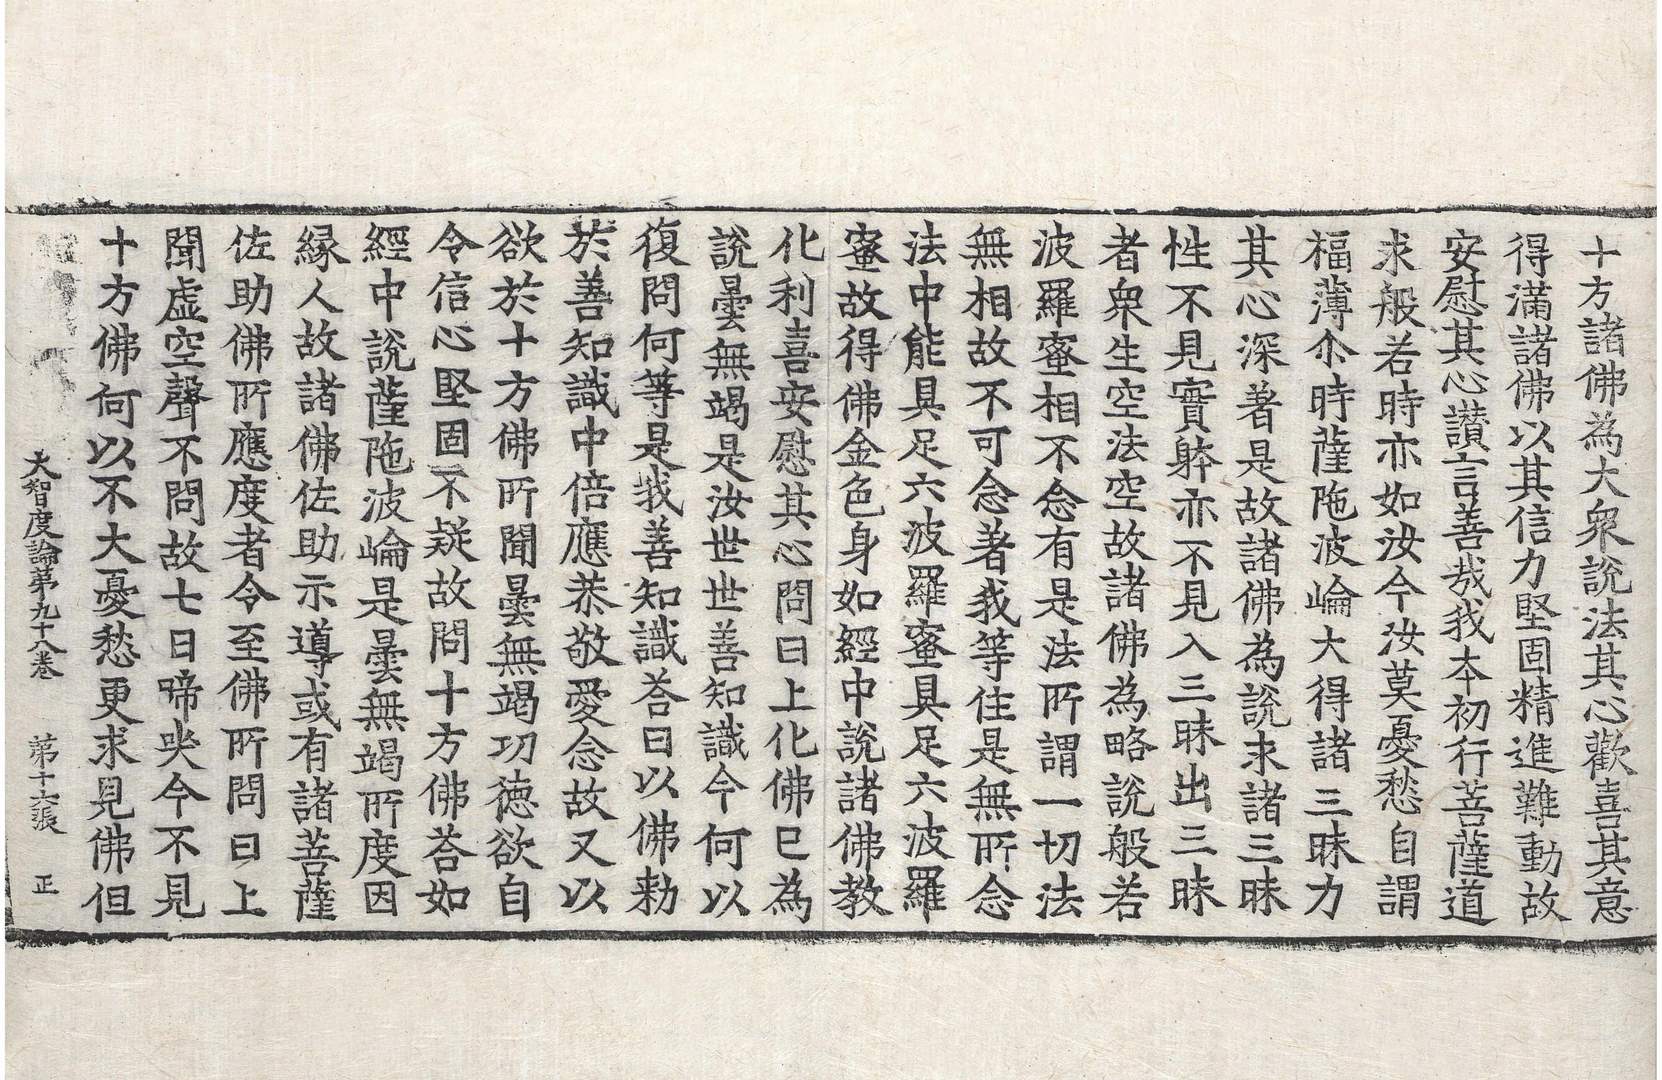 十方諸佛為大衆說法其心歡喜其意
得滿諸佛以其信力堅固精進難動故
安慰其心讃言善㢤我本初行菩薩道
求般若時亦如汝今汝莫憂愁自謂
福薄尒時薩陁波崙大得諸三昧力
其心深著是故諸佛為說求諸三昧
性不見實躰亦不見入三昧出三昧
者衆生空法空故諸佛為略說般若
波羅蜜相不念有是法所謂一切法
無相故不可念著我等住是無所念
法中能具足六波羅蜜具足六波羅
蜜故得佛金色身如經中說諸佛教
化利喜安慰其心問曰上化佛已為
說曇無竭是汝世世善知識今何以
復問何等是我善知識荅曰以佛勑
於善知識中倍應恭敬愛念故又以
欲於十方佛所聞曇無竭功德欲自
令信心堅固不疑故問十方佛荅如
經中說薩陁波崘是曇無竭所度因
緣人故諸佛佐助示導或有諸菩薩
佐助佛所應度者令至佛所問曰上
聞虛空聲不問故七日啼哭今不見
十方佛何以不大憂愁更求見佛但
大智度論第九十八卷 第十六張 正